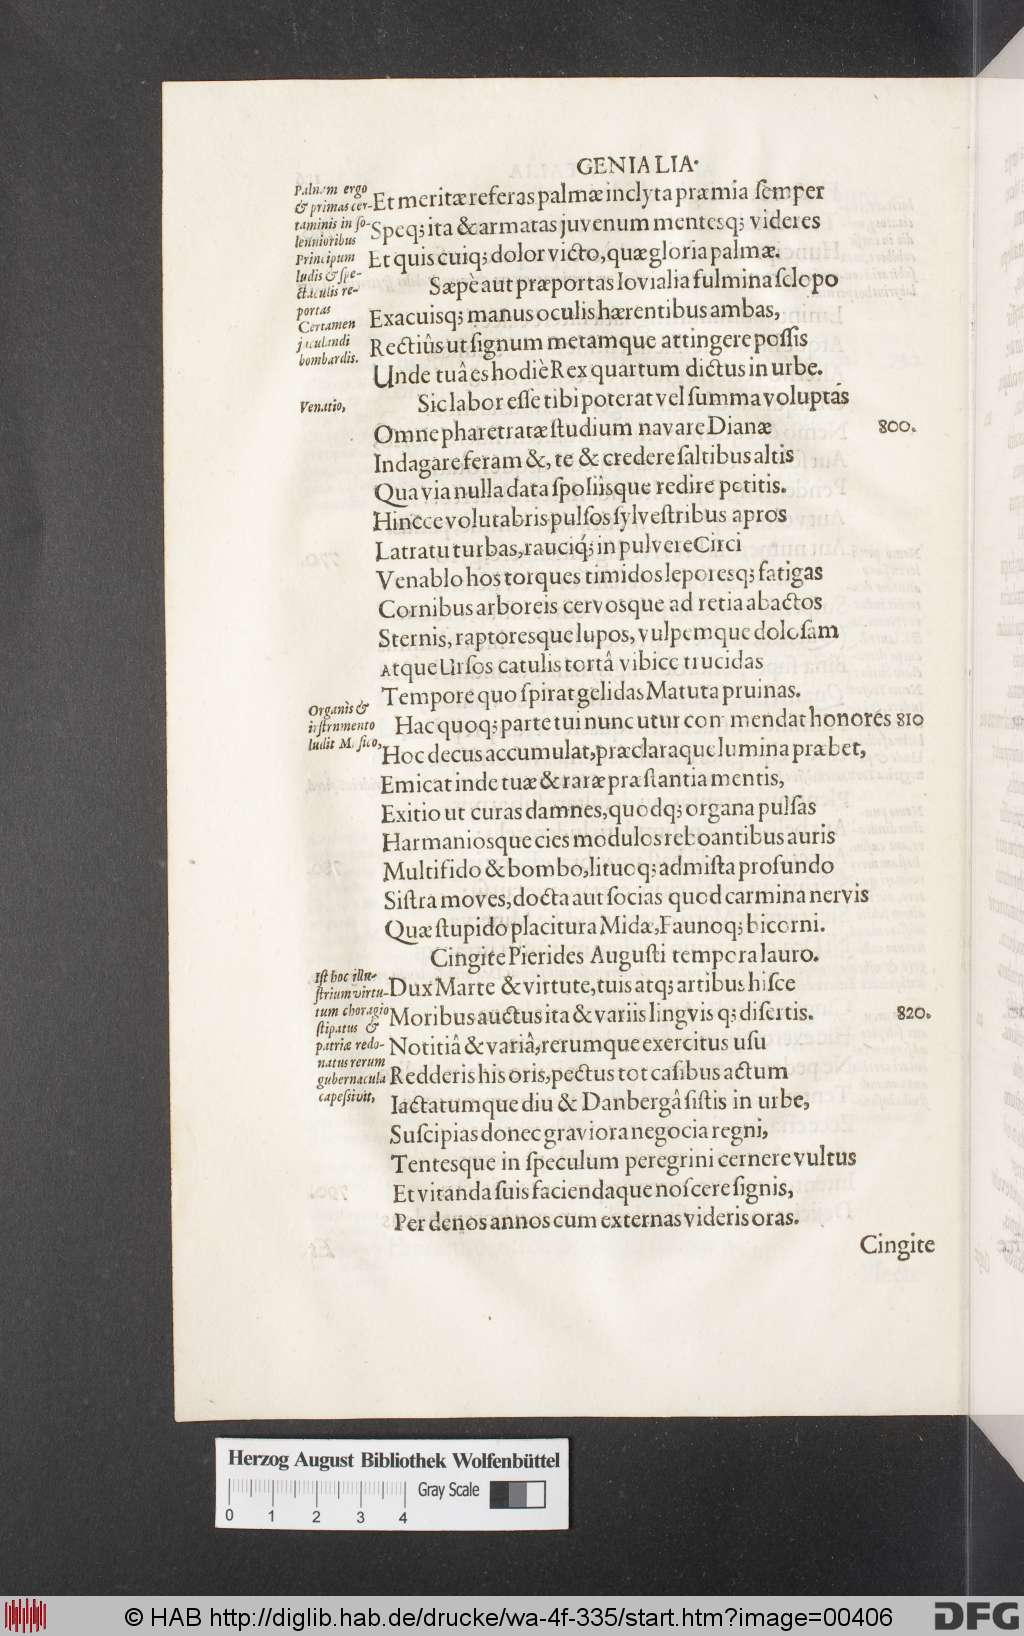 GENIALIA.
Palmam ergo
& primas cer-
taminis in so-
lennioribus
Principum
ludis & spe-
ctaculis re-
portas
Et meritæ referas palmæ inclyta præmia ſemper
Speq; ita & armatas juvenum mentesq; videres
Et quis cuiq; dolor victo, quæ gloria palmæ.
Sæpè aut præportas Iovialia fulmina ſclopo
Certamen
jaculandi
bombardis.
Exacuisq; manus oculis hærentibus ambas,
Rectiûs ut ſignum metamque attingere poſſis
Unde tuâ es hodiè Rex quartum dictus in urbe.
Venatio,
Sic labor eſſe tibi poterat vel ſumma voluptás
Omne pharetratæ ſtudium navare Dianæ 800.
Indagare feram &, te & credere ſaltibus altis
Qua via nulla data ſpoliisque redire petitis.
Hincce volutabris pulſos ſylveſtribus apros
Latratu turbas, rauciq́; in pulvere Circi
Venablo hos torques timidos leporesq; fatigas
Cornibus arboreis cervosque ad retia abactos
Sternis, raptoresque lupos, vulpemque doloſam
Atque Urſos catulis tortâ vibice trucidas
Tempore quo ſpirat gelidas Matuta pruinas.
Organis &
inſtrumento
ludit Muſico,
Hac quoq; parte tui nunc utur commendat honorés 810
Hoc decus accumulat, præclaraque lumina præbet,
Emicat inde tuæ & raræ præſtantia mentis,
Exitio ut curas damnes, quodq; organa pulſas
Harmaniosque cies modulos reboantibus auris
Multifido & bombo, lituoq; admiſta profundo
Siſtra moves, docta aut ſocias quod carmina nervis
Quæ ſtupido placitura Midæ, Faunoq; bicorni.
Cingite Pierides Auguſti tempora lauro.
Iſt hoc illu-
ſtrium virtu-
tum choragio
ſtipatus &
patriæ redo-
natus rerum
gubernacula
capeſsivit,
Dux Marte & virtute, tuis atq; artibus hiſce
Moribus auctus ita & variis lingvis q; diſertis. 820.
Notitiâ & variâ, rerumque exercitus uſu
Redderis his oris, pectus tot caſibus actum
Iactatumque diu & Danbergâ ſiſtis in urbe,
Suſcipias donec graviora negocia regni,
Tentesque in ſpeculum peregrini cernere vultus
Et vitanda ſuis faciendaque noſcere ſignis,
Per denos annos cum externas videris oras.
Cingite
Herzog August Bibliothek Wolfenbüttel
Gray Scale
0 1 2 3 4
© HAB http://diglib.hab.de/drucke/wa-4f-335/start.htm?image=00406
DFG